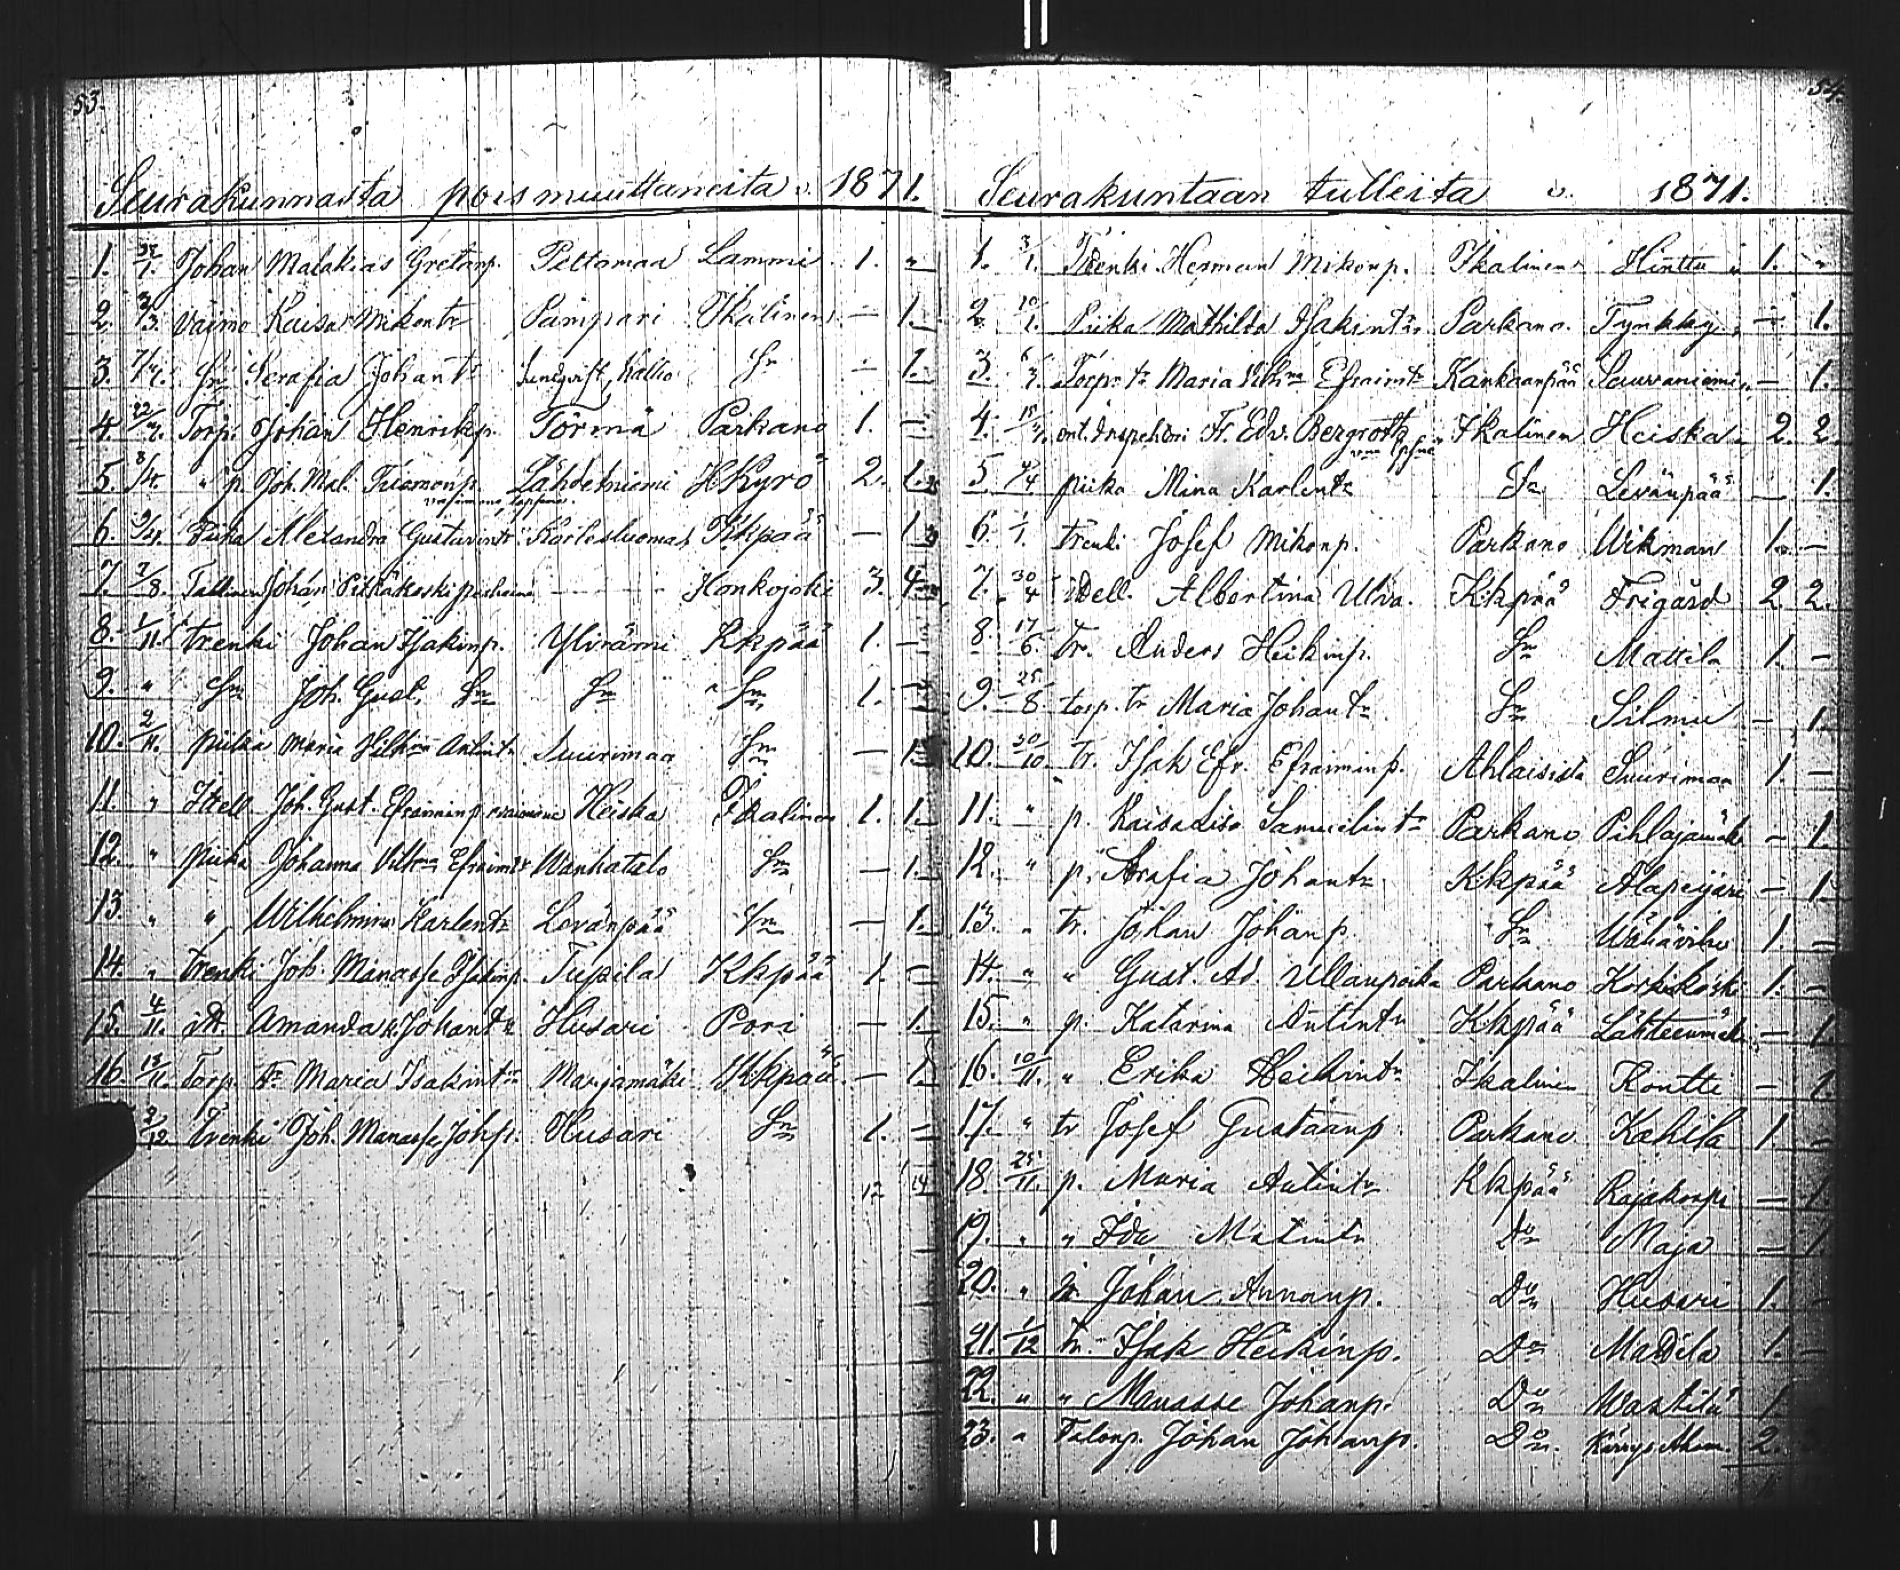 53.
Seurakunnasta poismuuttaneita v. 1871.
1. Johan Malakias Gretanp. Peltomaa Lammi 1. "
2. 2/3. Vaimo Kaisa Mikontr Pämpäri Ikalinen — 1.
3. Sn Serafia Johantr Sundqvist, Kallio Sn — 1.
4. 22/ Torp. Johan Henrikp. Törmä Parkano 1. —
5. " p. Joh. Mal. Tuomonp. Lähdeniemi HKyrö 2. 1.
vaimonsa, lapsensa.
6. Piika Alexandra Gustavintr Karlesluoma Kkpää — 1
7. 7/8. Johan Pitkäkoski Honkojoki 3. 4.
8. 1/11. trenki Johan Isakinp. Ylirämi Kkpää 1. —
9. " Sn Joh. Gust. Sn Sn " Sn 1. —
10. 2/11. piika Maria Vilhna Antintr Suurimaa Sn — 1.
11. " Itell Joh. Gust. Efraiminp vaimonsa Heiska Ikalinen 1. 1.
12. " piika Johanna Vilhna Efraimtr Wanhatalo Sn — 1.
13. " " Wilhelmina Karlentr Levänpää Sn — 1.
14. " trenki Joh. Manasse Isakinp. Tupila Kkpää 1. —
15. 4/11. Amanda K. Johantr Husari Pori — 1.
16. 13/11. Torp. tr Maria Isakintr Marjamäki Kkpää — 1.
2/12 trenki Joh. Manasse Johp. Husari Sn 1. —
12 14
54.
Seurakuntaan tulleita v. 1871.
1. 3/1. Trenki Herman Mikonp. Ikalinen Hinttu 1. "
2 10/1. Piika Mathilda Isakintr Parkano. Tynkky — 1.
3. Torp. tr Maria Vilhna Efraimtr Kankaanpää Sauvaniemi — 1.
4. 15/ ent. Inspehtori Fr. Edv. Bergroth Ikalinen Heiska 2. 2.
5. 4/4 piika Mina Karlentr Sn Levänpää — 1.
6. 1/1. trenki Josef Mikonp. Parkano Wikman 1. —
7. 30/4 Albertina Ulrika. Kkpää Frigård 2. 2.
8. 17/6. tr. Anders Heikinp. Sn Mattila 1. —
9. 25/8. torp. tr Maria Johantr Sn Silmu — 1.
10. 30/10. Tr. Isak Efr. Efraiminp. Ahlaisista Suurimaa 1. —
11. " p. Kaisa Lisa Samuelintr Parkano Pihlajamäki — 1.
12. " p. Serafia Johantr Kkpää Alapeijari — 1.
13. " tr. Johan Johanp. Sn 1. —
14. " " Gust. Ad. Ullanpoika Parkano Korhikoski 1. —
15. " p. Katarina Antintr Kkpää Lähteenmäki — 1.
16. 10/11. " Erika Heikintr Ikalinen Kontti — 1.
17. " tr Josef Gustaanp. Parkano Kahila 1. —
18. 25/11. p. Maria Antintr Kkpää Rajakorpi — 1.
19. " " Ida Matintr Do Maja — 1.
20. " Johan Annanp. Do Husari 1. —
21. 1/12 tr. Isak Heikinp. Do Mattila 1. —
22. " " Manasse Johanp. Do Wastila 1
23. " Talonp. Johan Johanp. Do 2.